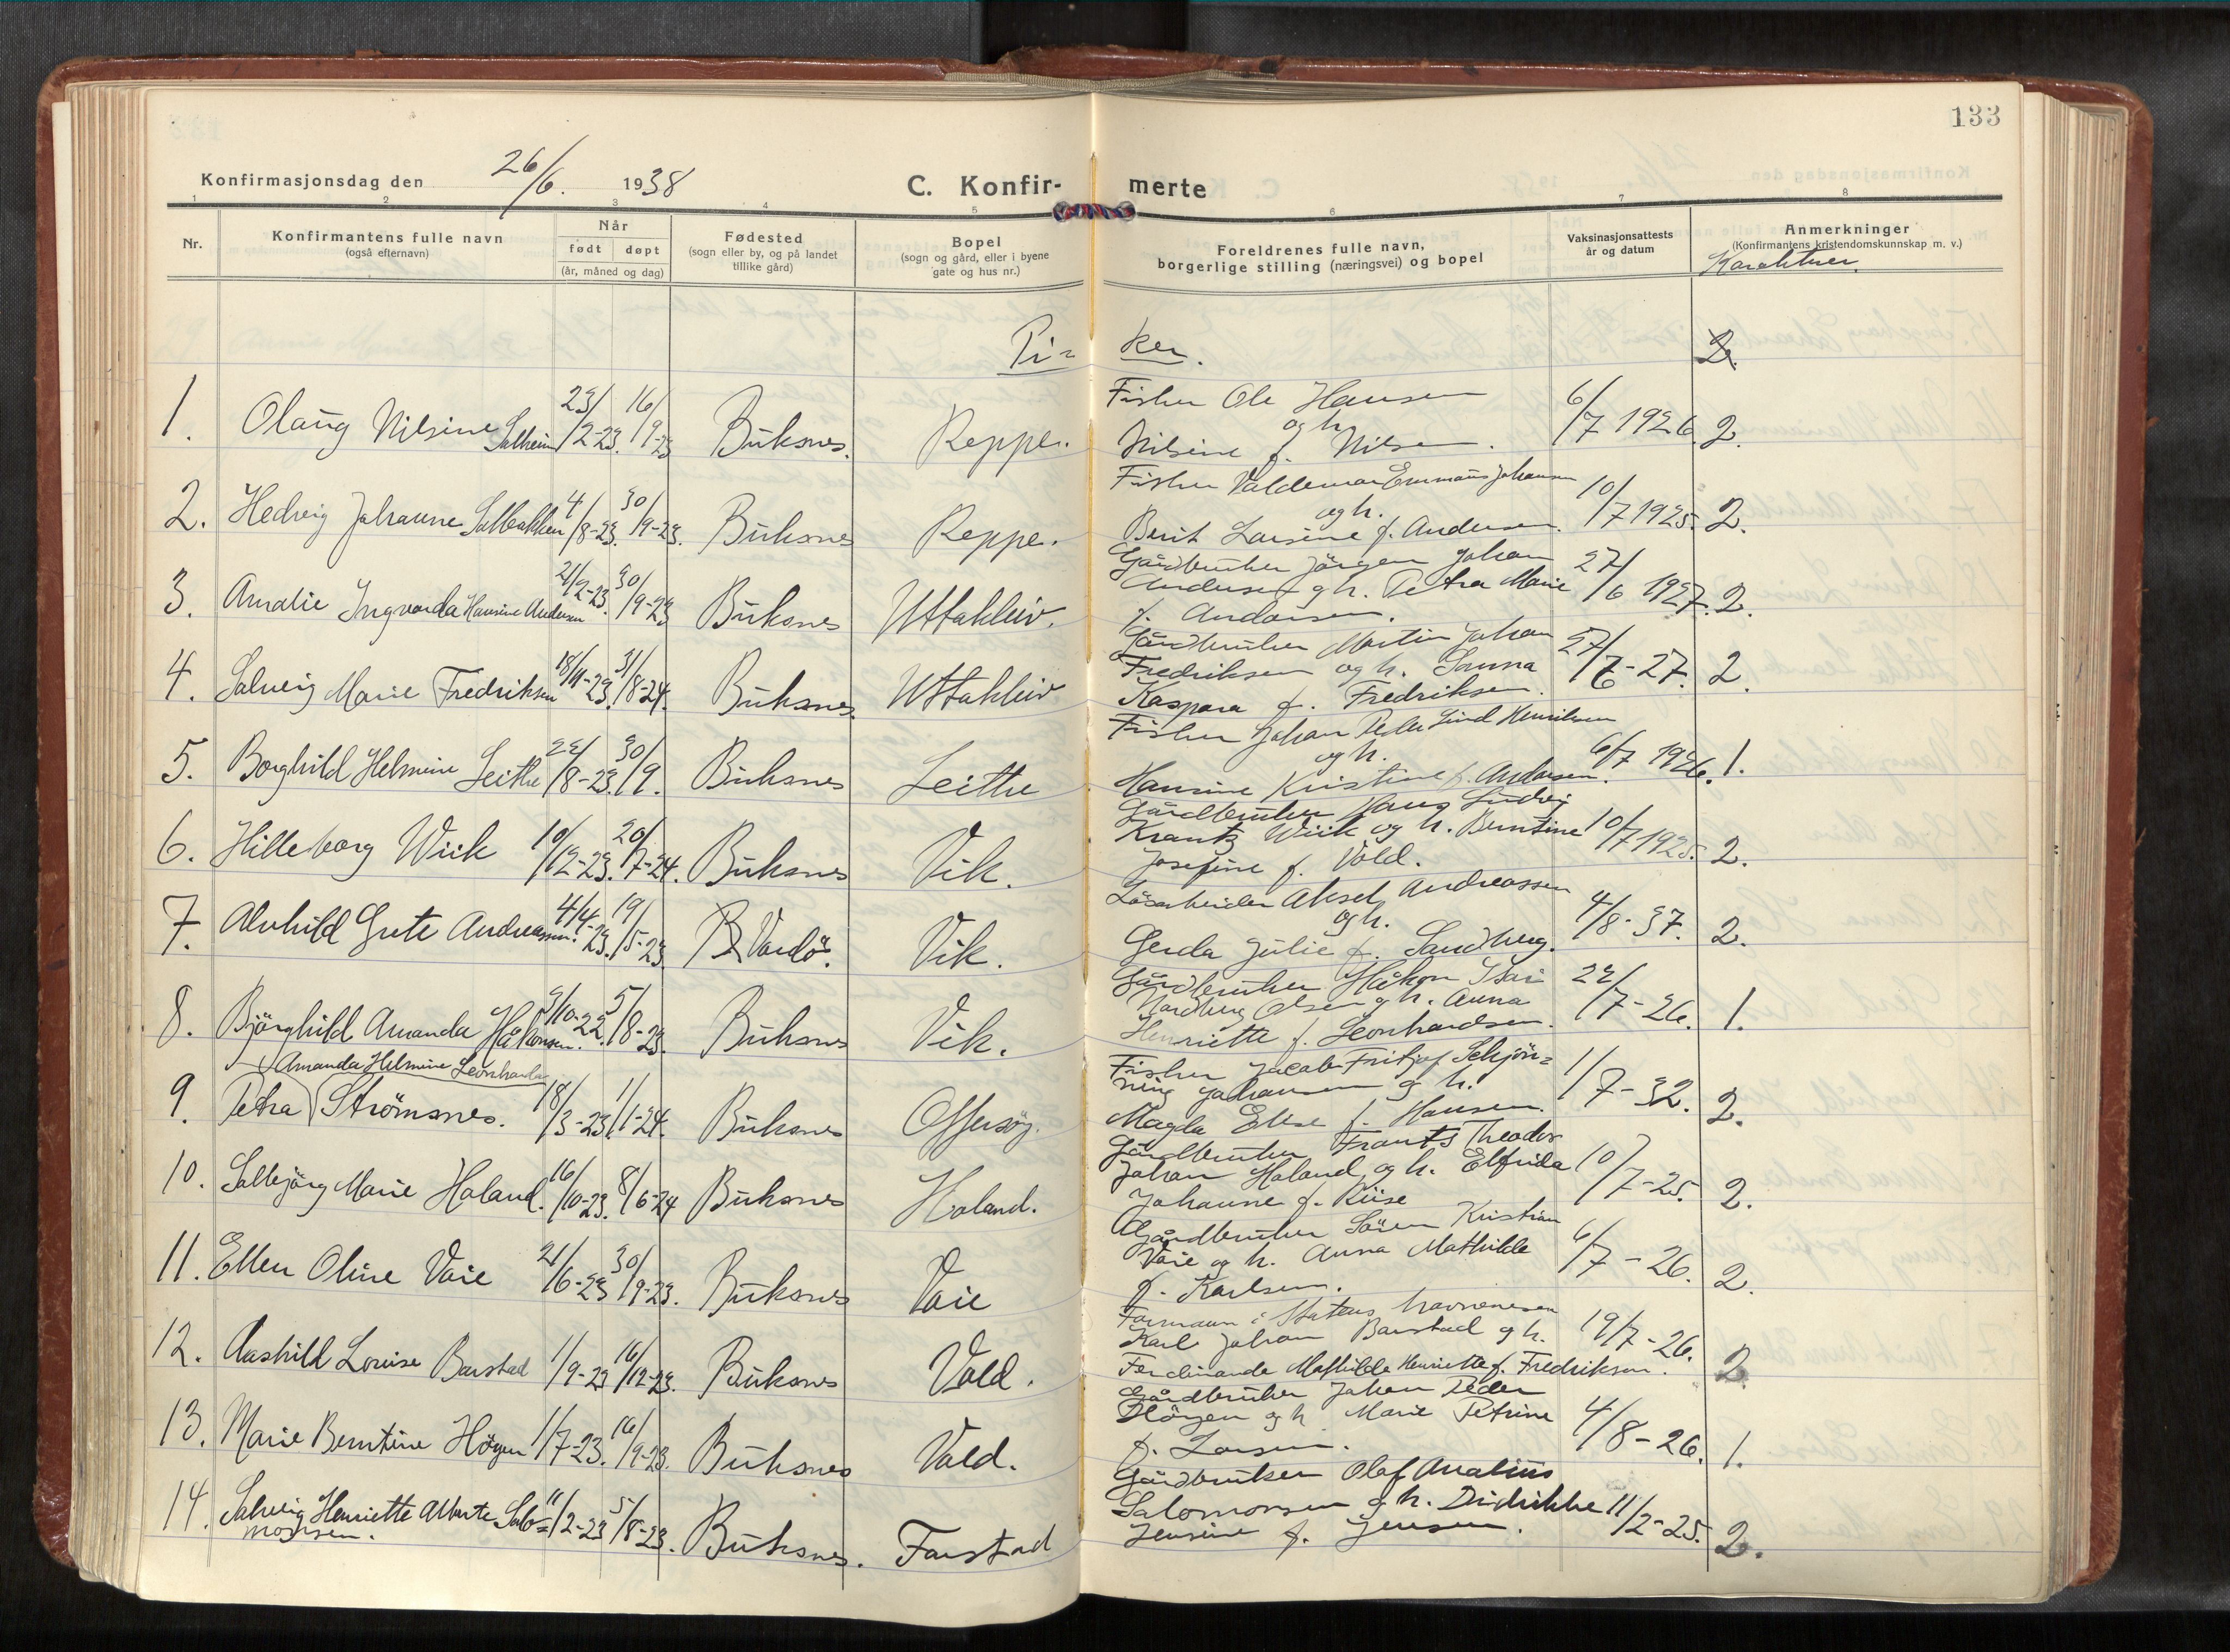 133
Konfirmasjonsdag den 26/6. 1938
C. Konfir- merte
1 2 3 4 5 6 7 8
Nr.
Konfirmantens fulle navn
(også efternavn)
Når
født døpt
(år, måned og dag)
Fødested
(sogn eller by, og på landet
tillike gård)
Bopel
(sogn og gård, eller i byene
gate og hus nr.)
Foreldrenes fulle navn,
borgerlige stilling (næringsvei) og bopel
Vaksinasjonsattests
år og datum
Anmerkninger
(Konfirmantens kristendomskunnskap m. v.)
Karakterer.
Pi= ker.
1. Olaug Nilsine Solheim 23/2-23. 16/9-23 Buksnes. Reppe. Fisker Ole Hansen
og h.
Nilsine f. Nilsen. 6/7 1926. 2.
2. Hedvig Johanne Solbakken 4/8-23. 30/9-23. Buksnes Reppe. Fisker Valdemar Emmaus Johansen
og h.
Berit Larsine f. Andersen. 10/7 1925. 2.
3. Amalie Ingvarda Hansine Andersen 21/2-23. 30/9-23 Buksnes Uttakleiv. Gårdbruker Jörgen Johan
Andersen og h. Petra Marie
f. Andersen. 27/6 1927. 2.
4. Solveig Marie Fredriksen 18/11-23. 31/8-24. Buksnes. Uttakleiv Gårdbruker Martin Johan
Fredriksen og h. Sanna
Kaspara f. Fredriksen. 27/6-27. 2.
5. Borghild Helmine Leithe 22/8-23. 30/9. Buksnes Leithe Fisker Johan Peder Lind Henriksen
og h.
Hansine Kristine f. Andersen. 6/7 1926. 1.
6. Hilleborg Wiik 10/12-23. 20/7-24. Buksnes Vik. Gårdbruker Hans Ludvig
Krantz Wiik og h. Berntine
Josefine f. Vold. 10/7 1925. 2.
7. Alvhild Grete Andreassen. 4/4-23. 19/5-23. Vardö. Vik. Lösarbeider Aksel Andreassen
og h.
Gerda Julie f. Sandberg. 4/8-37. 2.
8. Bjørghild Amanda Håkonsen. 3/10-22. 5/8-23. Buksnes Vik. Gårdbruker Håkon
Nordberg Olsen og h. Anna
Henriette f. Leonhardsen. 22/7-26. 1.
Amanda Helmine Leonharda
9. Petra Strömsnes. 18/3-23. 1/1-24. Buksnes Offersöy. Fisker Jacob Fritjof Schjön=
ning Johansen og h.
Magda Elise f. Hansen. 1/7-32. 2.
10. Solbjörg Marie Holand. 16/10-23. 8/6-24 Buksnes Holand. Gårdbruker Frants Theodor
Johan Holand og h. Elfrida
Johanne f. Riise 10/7-25. 2.
11. Ellen Oline Voie 21/6-23 30/9-23. Buksnes Voie Gårdbruker Sören Kristian
Voie og h. Anna Mathilde
f. Karlsen. 6/7-26. 2.
12. Aashild Louise Barstad 1/9-23 16/12-23. Buksnes Vold. Formann i Statens havnevesen
Karl Johan Barstad og h.
Ferdinande Mathilde Henriette f. Fredriksen. 19/7-26. 2.
13. Marie Berntine Högen 1/7-23. 16/9-23. Buksnes Vold. Gårdbruker Johan Peder
Högen og h. Marie Petrine
f. Larsen. 4/8-26. 1.
14. Solveig Henriette Alberte Salo=
monsen. 11/2-23 5/8-23. Buksnes. Farstad Gårdbruker Olaf Analius
Salomonsen og h. Didrikke
Jensine f. Jensen. 11/2-25. 2.